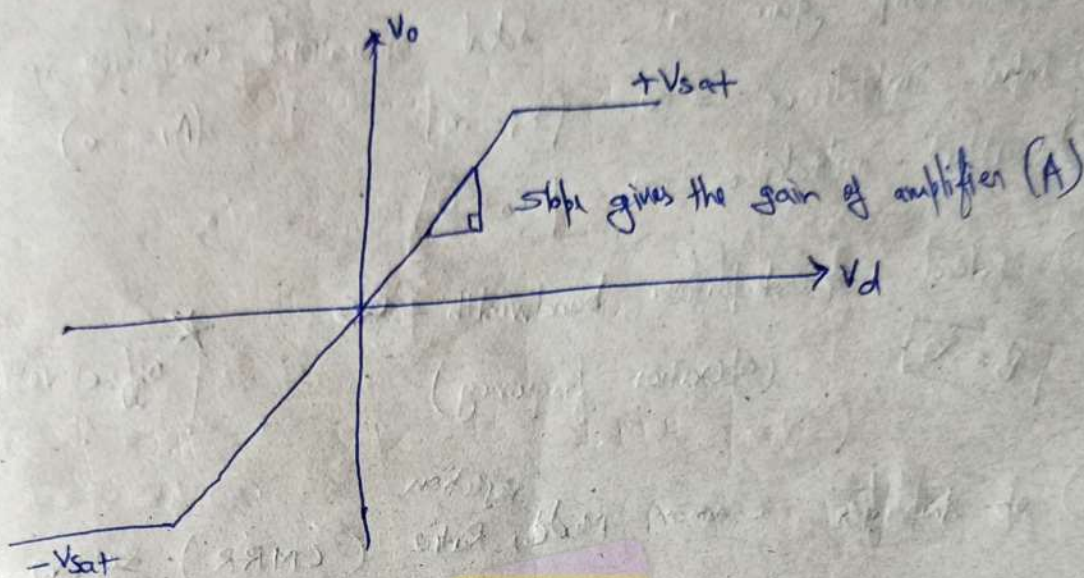 Vo
+Vsat
slope gives the gain of amplifier (A)
Vd
-Vsat
(CMRR)